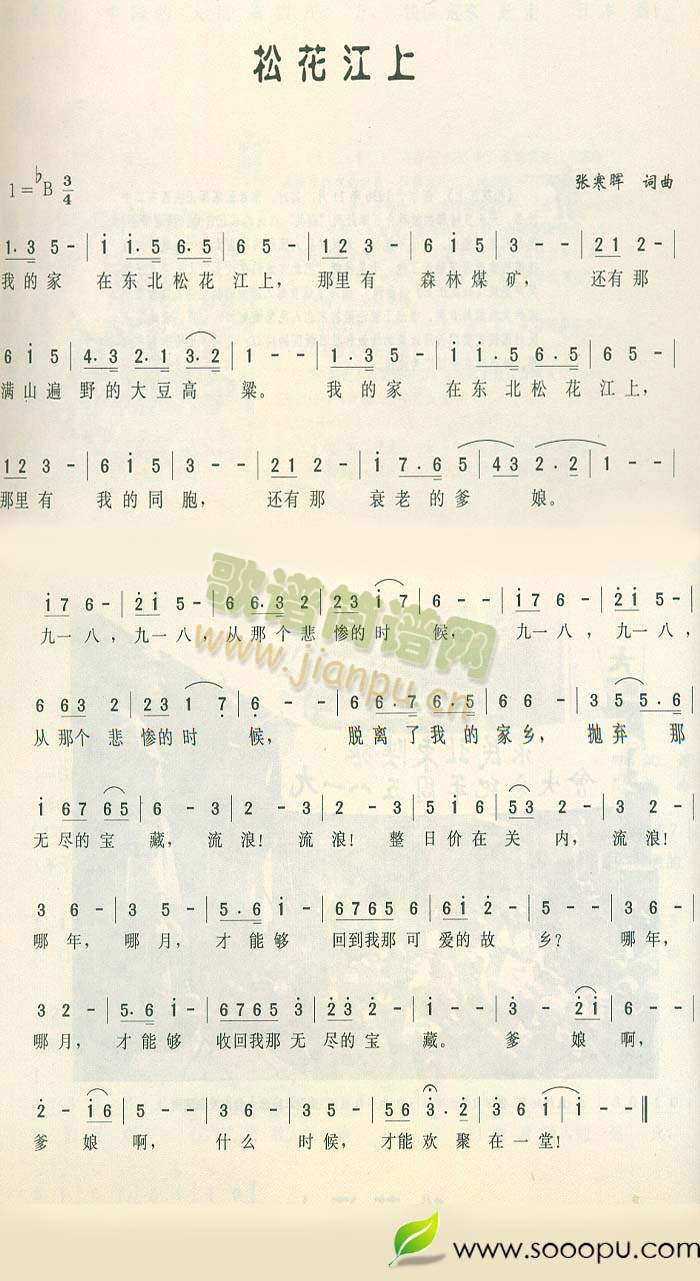 松花江上
1=♭B 3/4
张寒晖 词曲
1.3 5-|i i.5 6.5|65-|123-|6i5|3--|212-|
我的家 在东北松花江上, 那里有 森林煤矿, 还有那
6i5|4.3 2.1 3.2|1--|1.35-|i i.5 6.5|65-|
满山遍野的大豆高粱。 我的家 在东北松花江上,
123-|6i5|3--|212-|i 7.6 5|43 2.2|1--|
那里有 我的同胞, 还有那 衰老的爹娘。
歌谱简谱网
www.jianpu.cn
i76-|2i5-|66.32|23i7|6--|i76-|2i5-|
九一八, 九一八, 从那个悲惨的时候, 九一八, 九一八,
6632|23i7|6--|66.7 6.5|66-|355.6|
从那个悲惨的时候, 脱离了我的家乡, 抛弃那
i6765|6-3|2-3|2-3|5i6|532|32-|
无尽的宝藏, 流浪! 流浪! 整日价在关内, 流浪!
36-|35-|5.6i-|67656|6i2-|5--|36-|
哪年, 哪月, 才能够 回到我那可爱的故乡? 哪年,
32-|5.6i-|67653|232-|i--|3-2i|6--|
哪月, 才能够 收回我那无尽的宝藏。 爹娘啊,
2-i6|5--|36-|35-|563.2|36i|i--‖
爹娘啊, 什么时候, 才能欢聚在一堂!
www.sooopu.com